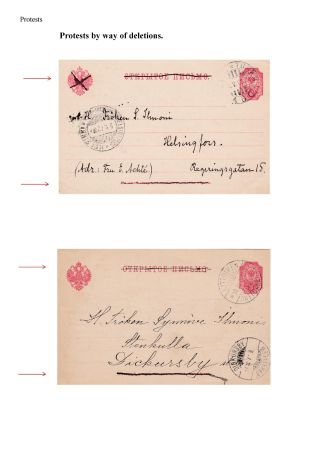 Protests
Protests by way of deletions.
ОТКРЫТОЕ ПИСЬМО.
H. Fröken S. Ilmoni
Helsingfors.
(Adr: Fru E. Achté) Regeringsgatan 15.
ОТКРЫТОЕ ПИСЬМО.
H. Fröken Ilmonis
Stenkulla
Dickursby